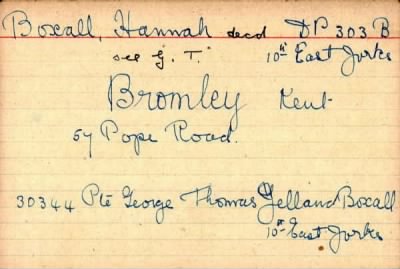 Boxall, Hannah decd DP 303 B
see G. T. 10th East Yorks
Bromley Kent
57 Pope Road.
30344 Pte George Thomas Yelland Boxall
10th East Yorks